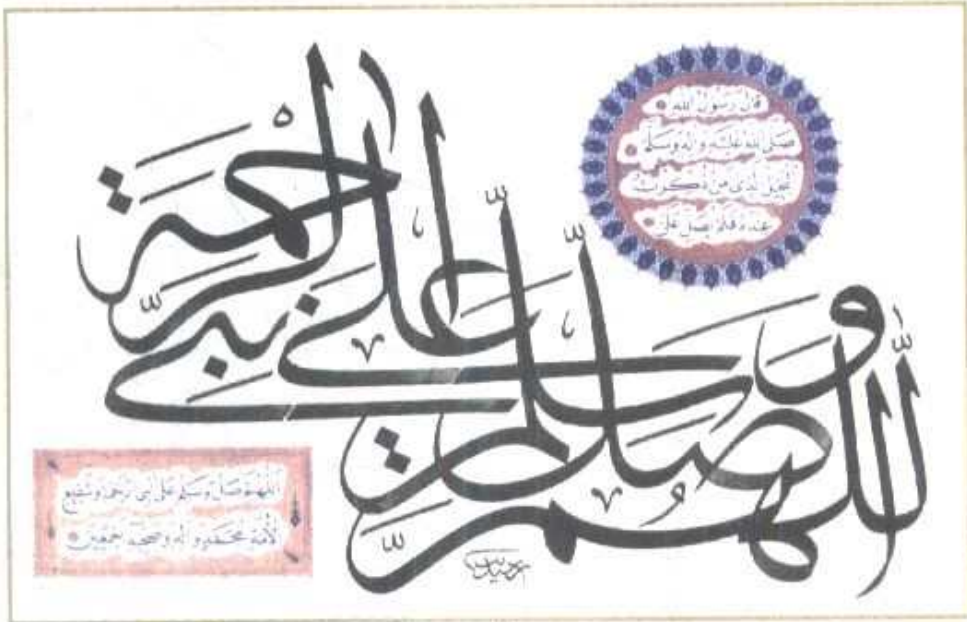 اللهم صل وسلم على نبي الرحمة
قال رسول الله
صلى الله عليه وآله وسلم
البخيل الذي من ذكرت
عنده فلم يصل علي
اللهم صل وسلم على نبي الرحمة وشفيع
الأمة محمد وآله وصحبه أجمعين